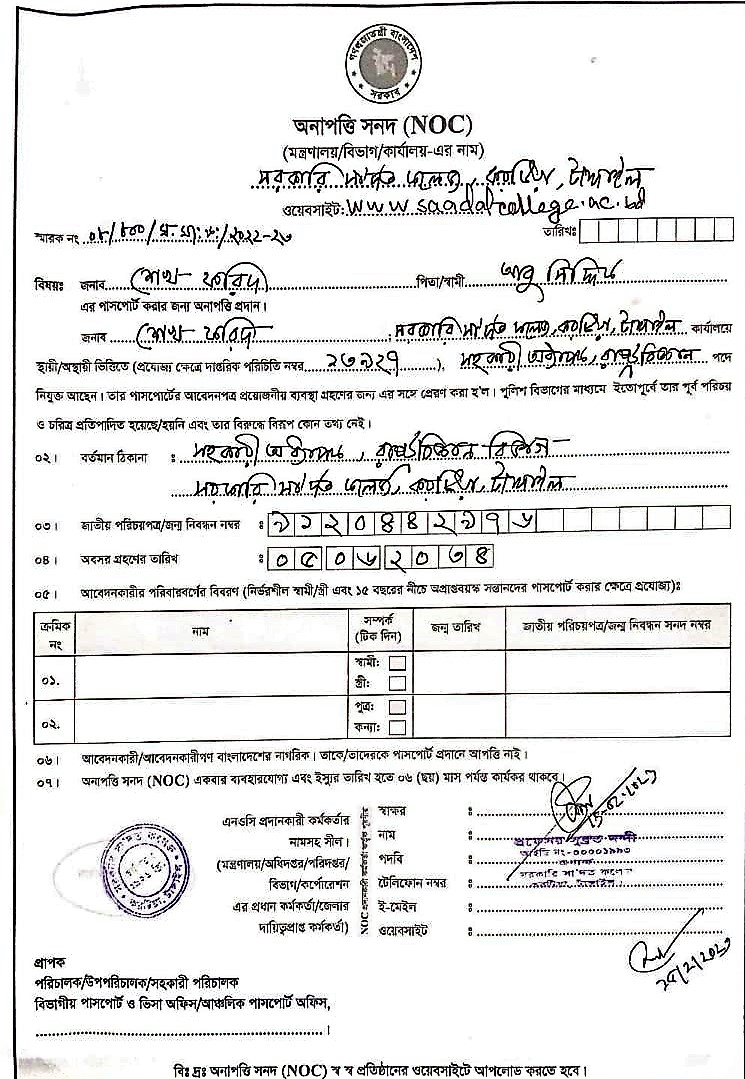 গণপ্রজাতন্ত্রী বাংলাদেশ
সরকার
অনাপত্তি সনদ (NOC)
(মন্ত্রণালয়/বিভাগ/কার্যালয়-এর নাম)
সরকারি সা'দত কলেজ, করটিয়া, টাঙ্গাইল
ওয়েবসাইট: www.saadatcollege.ac.bd
স্মারক নং /২০২২-২৩ তারিখঃ
বিষয়ঃ জনাব শেখ ফরিদ পিতা/স্বামী আবু সিদ্দিক
এর পাসপোর্ট করার জন্য অনাপত্তি প্রদান।
জনাব শেখ ফরিদ, সরকারি সা'দত কলেজ, করটিয়া, টাঙ্গাইল কার্যালয়ে
স্থায়ী/অস্থায়ী ভিত্তিতে (প্রযোজ্য ক্ষেত্রে দাপ্তরিক পরিচিতি নম্বর ২৩৯২৭), সহকারী অধ্যাপক, রাষ্ট্রবিজ্ঞান পদে
নিযুক্ত আছেন। তার পাসপোর্টের আবেদনপত্র প্রয়োজনীয় ব্যবস্থা গ্রহণের জন্য এর সঙ্গে প্রেরণ করা হ'ল। পুলিশ বিভাগের মাধ্যমে ইতোপূর্বে তার পূর্ব পরিচয়
ও চরিত্র প্রতিপাদিত হয়েছে/হয়নি এবং তার বিরুদ্ধে বিরূপ কোন তথ্য নেই।
০২। বর্তমান ঠিকানা : সহকারী অধ্যাপক, রাষ্ট্রবিজ্ঞান বিভাগ
সরকারি সা'দত কলেজ, করটিয়া, টাঙ্গাইল
০৩। জাতীয় পরিচয়পত্র/জন্ম নিবন্ধন নম্বর : ৯১২০৪৪২৯৭৬
০৪। অবসর গ্রহণের তারিখ : ০৫০৬২০৩৪
০৫। আবেদনকারীর পরিবারবর্গের বিবরণ (নির্ভরশীল স্বামী/স্ত্রী এবং ১৫ বছরের নীচে অপ্রাপ্তবয়স্ক সন্তানদের পাসপোর্ট করার ক্ষেত্রে প্রযোজ্য)ঃ
ক্রমিক নং নাম সম্পর্ক (টিক দিন) জন্ম তারিখ জাতীয় পরিচয়পত্র/জন্ম নিবন্ধন সনদ নম্বর
০১. স্বামী:
স্ত্রী:
০২. পুত্র:
কন্যা:
০৬। আবেদনকারী/আবেদনকারীগণ বাংলাদেশের নাগরিক। তাকে/তাদেরকে পাসপোর্ট প্রদানে আপত্তি নাই।
০৭। অনাপত্তি সনদ (NOC) একবার ব্যবহারযোগ্য এবং ইস্যুর তারিখ হতে ০৬ (ছয়) মাস পর্যন্ত কার্যকর থাকবে।
এনওসি প্রদানকারী কর্মকর্তার
নামসহ সীল।
(মন্ত্রণালয়/অধিদপ্তর/পরিদপ্তর/
বিভাগ/কর্পোরেশন
এর প্রধান কর্মকর্তা/জেলার
দায়িত্বপ্রাপ্ত কর্মকর্তা)
স্বাক্ষর : 15-02-2023
নাম : প্রফেসর সুব্রত নন্দী
আইডি নং-০০০০১৯৯৩
পদবি : অধ্যক্ষ
টেলিফোন নম্বর : সরকারি সা'দত কলেজ
করটিয়া, টাঙ্গাইল।
ই-মেইল :
ওয়েবসাইট :
প্রাপক
পরিচালক/উপপরিচালক/সহকারী পরিচালক
বিভাগীয় পাসপোর্ট ও ভিসা অফিস/আঞ্চলিক পাসপোর্ট অফিস,
।
বিঃ দ্রঃ অনাপত্তি সনদ (NOC) স্ব স্ব প্রতিষ্ঠানের ওয়েবসাইটে আপলোড করতে হবে।